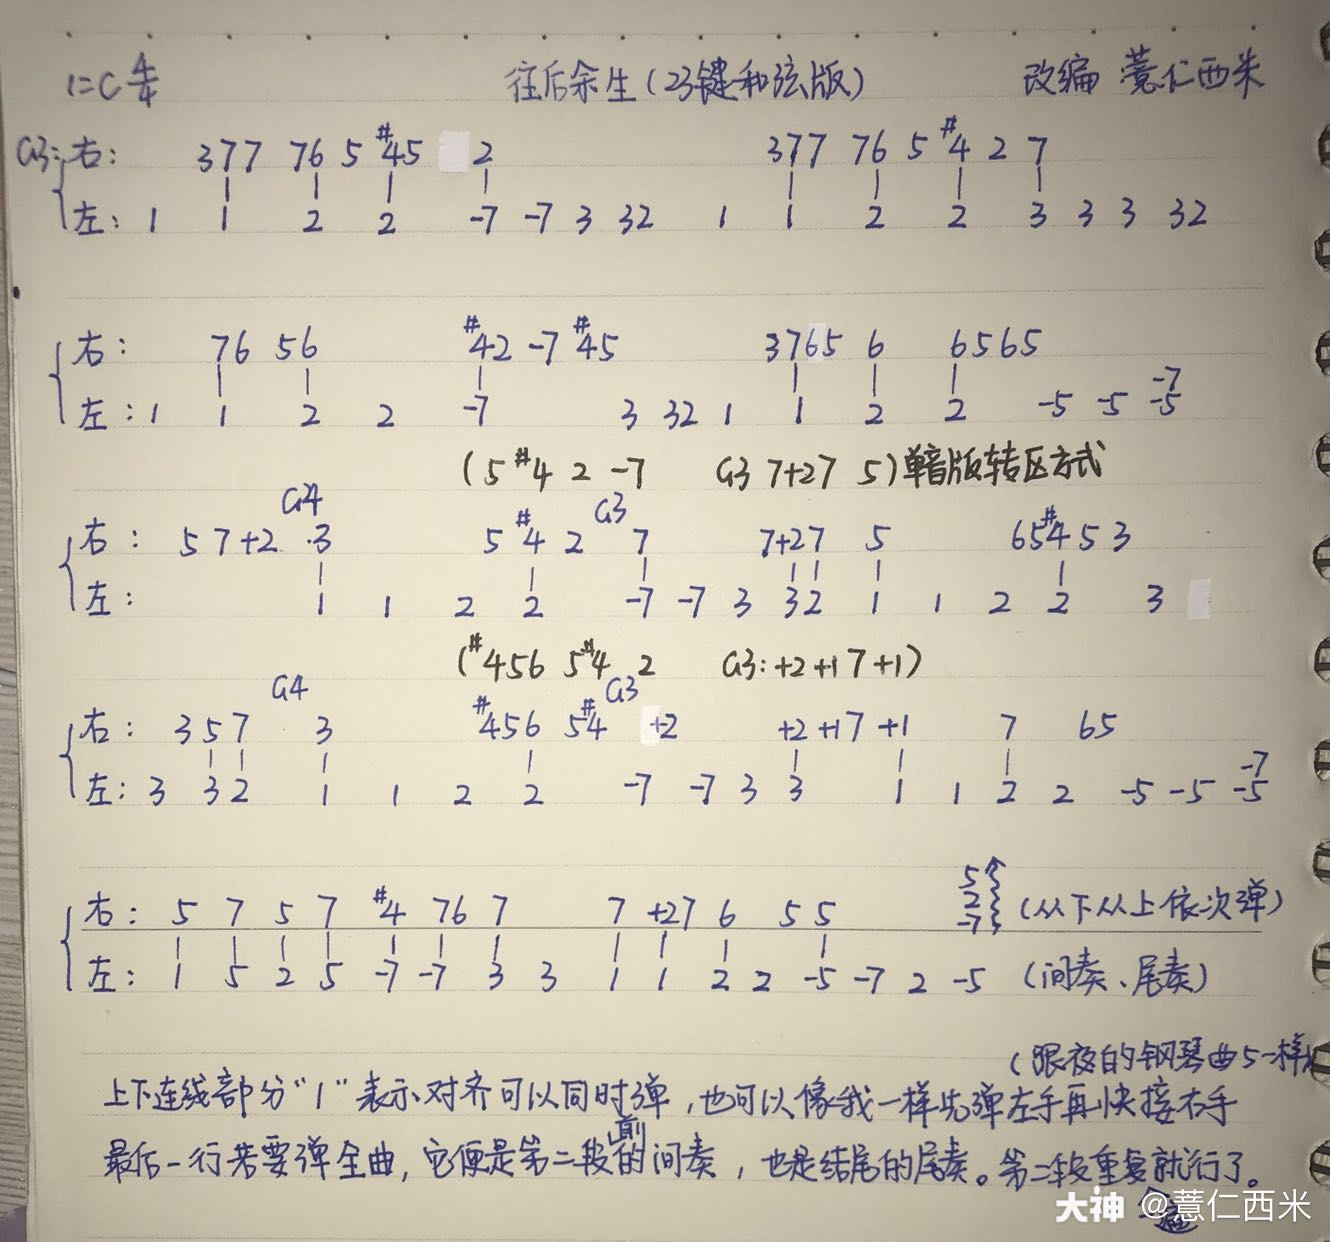 1=C 4/4 往后余生(23键和弦版) 改编 薏仁西米
G3: 右: 377 76 5 #45 2 377 76 5 #4 2 7
左: 1 1 2 2 -7 -7 3 32 1 1 2 2 3 3 3 32
右: 76 56 #42 -7 #45 3765 6 6565
-7
左: 1 1 2 2 -7 3 32 1 1 2 2 -5 -5 -5
(5 #4 2 -7 G3 7+27 5)单音版转区方式
G4 G3
右: 5 7+2 ·3 5 #4 2 7 7+27 5 65#4 5 3
左: 1 1 2 2 -7 -7 3 32 1 1 2 2 3
(#456 5#4 2 G3: +2+17+1)
G4 G3
右: 357 3 #456 5#4 +2 +2+17+1 7 65
-7
左: 3 32 1 1 2 2 -7 -7 3 3 1 1 2 2 -5 -5 -5
5
2
右: 5 7 5 7 #4 76 7 7 +27 6 5 5 -7 (从下从上依次弹)
左: 1 5 2 5 -7 -7 3 3 1 1 2 2 -5 -7 2 -5 (间奏、尾奏)
(跟夜的钢琴曲5一样)
上下连线部分“1”表示对齐可以同时弹,也可以像我一样先弹左手再快接右手
最后一行若要弹全曲,它便是第二段前的间奏,也是结尾的尾奏。第二段重复就行了。
大神 @薏仁西米